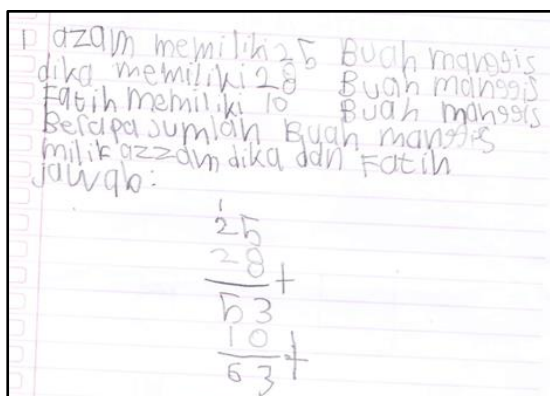 1 azam memiliki 25 Buah manggis
dika memiliki 28 Buah manggis
Fatih memiliki 10 Buah manggis
Berapa Jumlah Buah manggis
milik azzam dika dan Fatih
jawab:
1
25
28 +
53
10 +
63